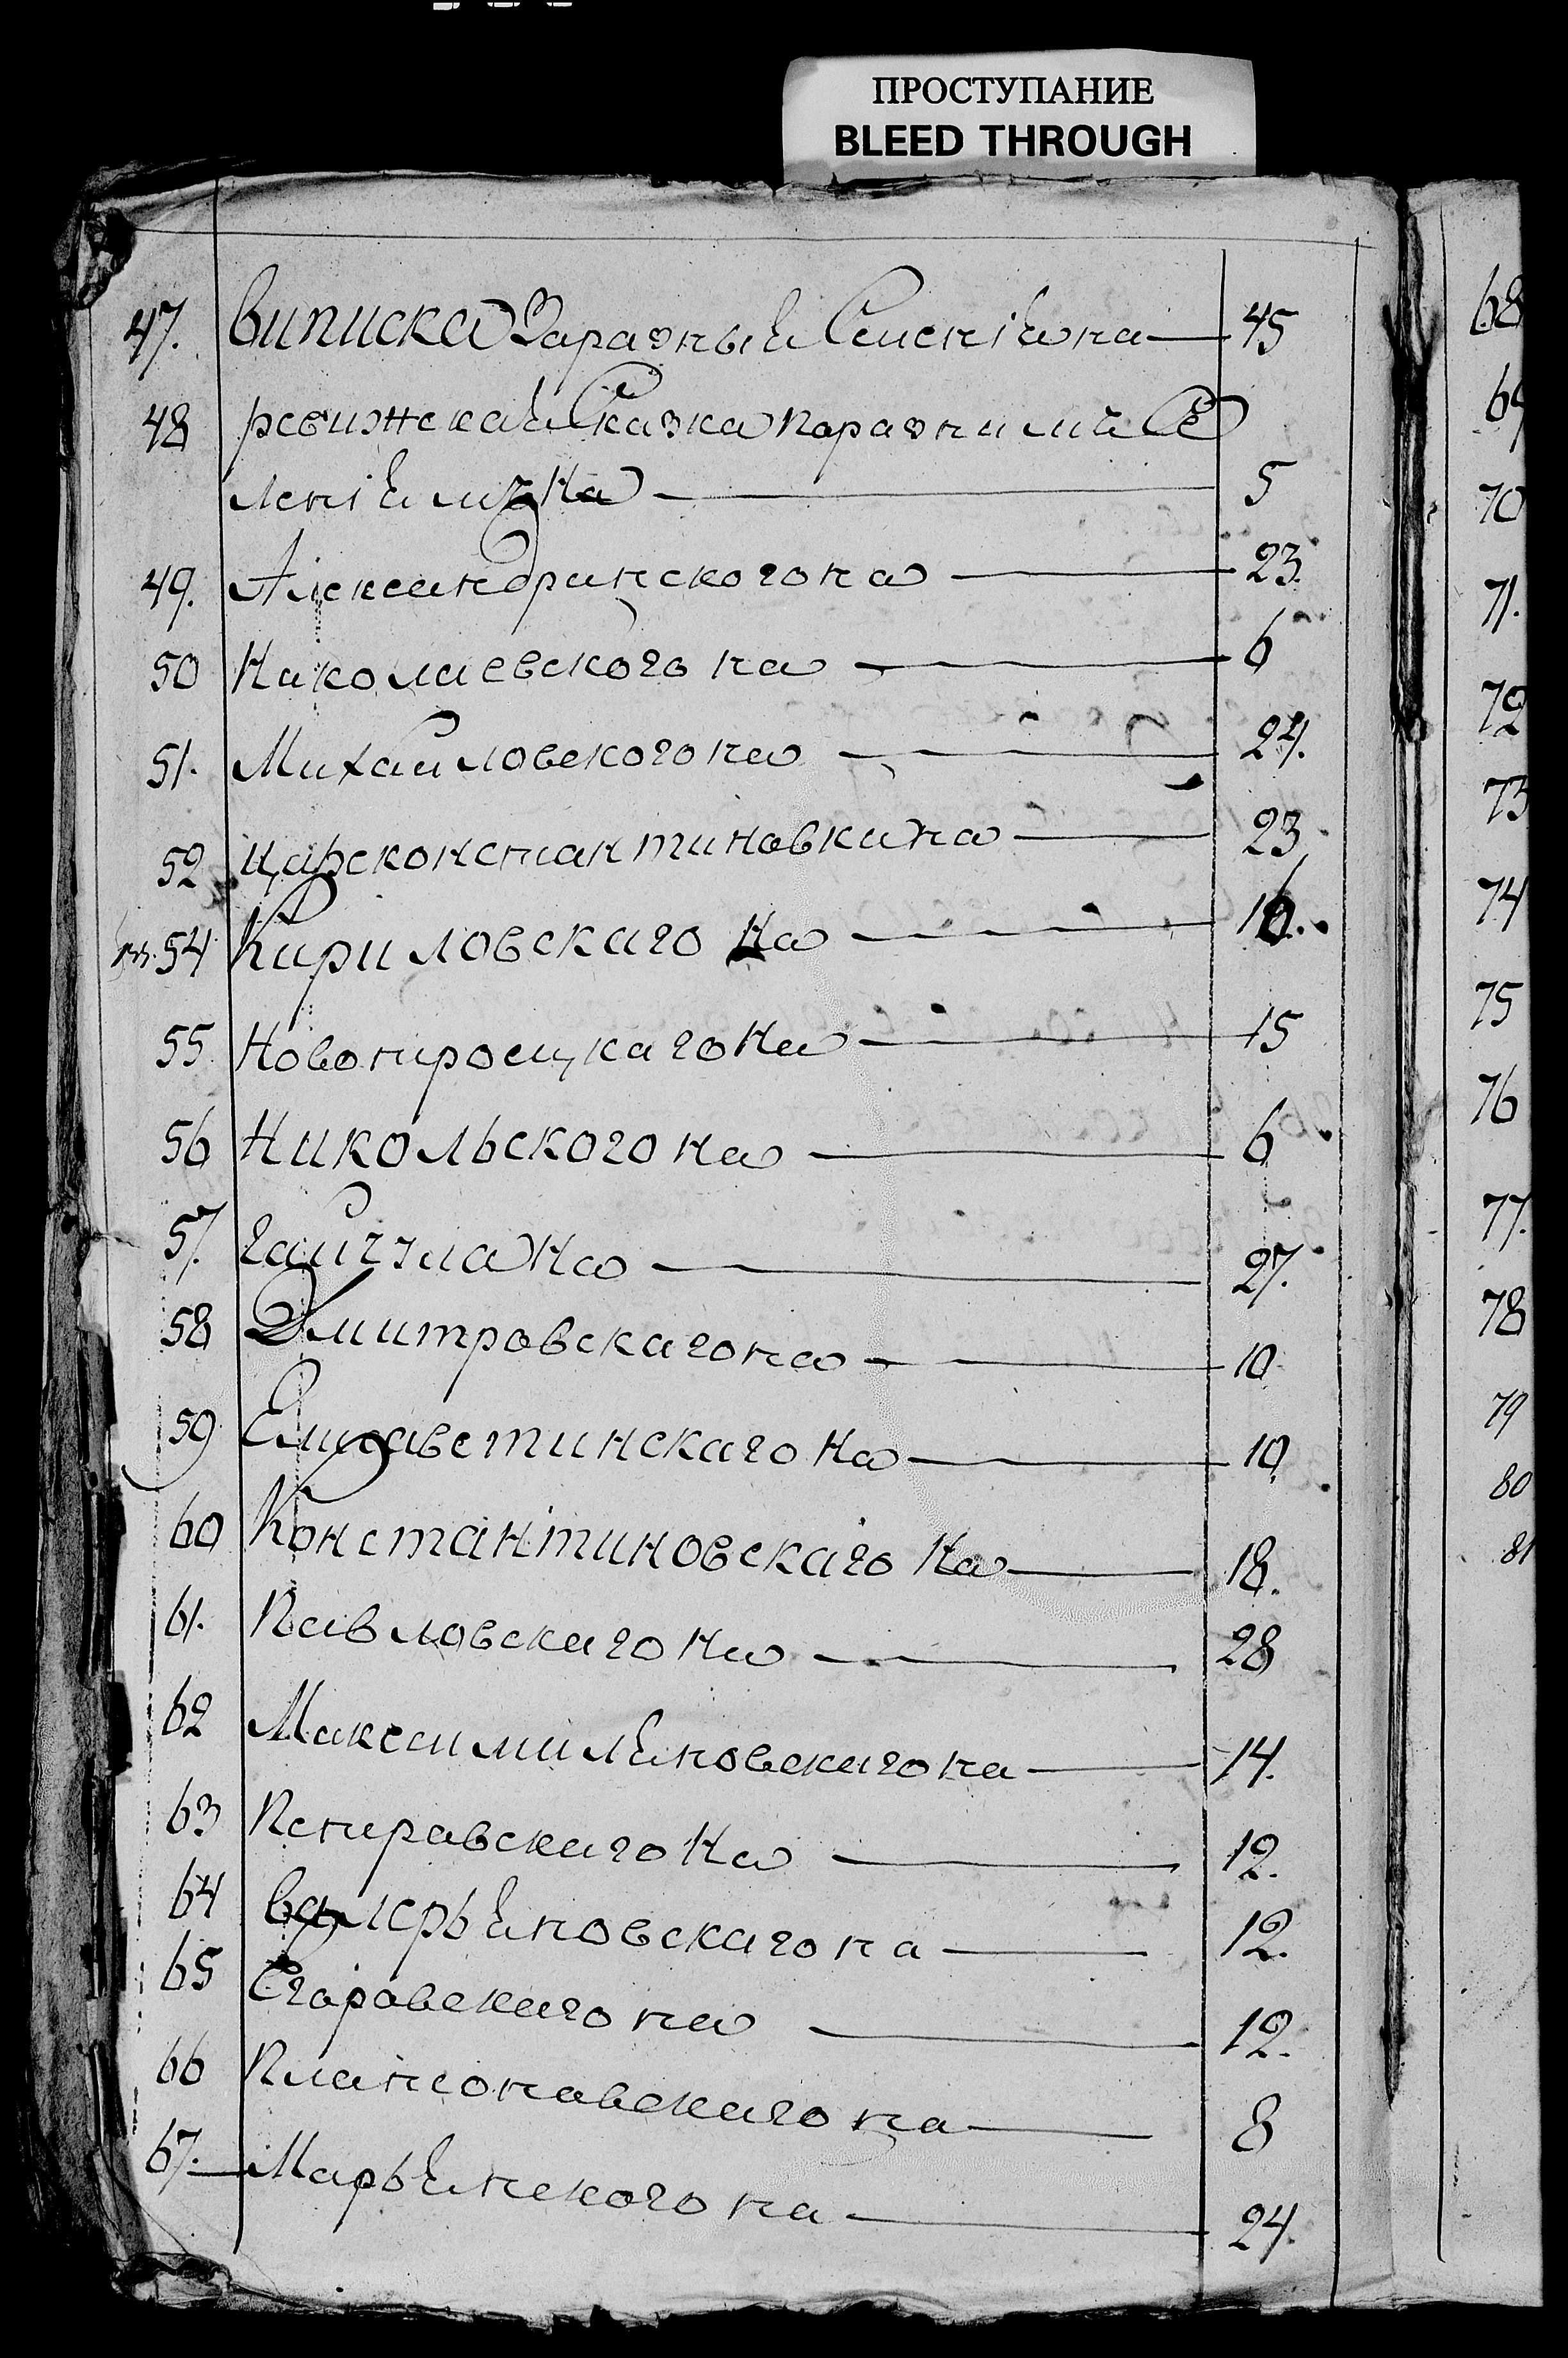 ПРОСТУПАНИЕ
BLEED THROUGH
47. выписка Заразныя Селенія на 45
48 ревижская Сказка поразнимъ Се
леніямъ На 5
49. Александринского на 23.
50 Николаевского на 6
51. Михайловского на 24.
52 царсконстантиновки на 23
54 Кириловскаго На 16.
55 Новотроецкаго На 15
56 Никольского На 6
57. Гайчула На 27.
58 Дмитровскаго на 10
59 Елисаветинскаго На 10
60 Константиновскаго На 18.
61. Павловскаго На 28
62 Максимиляновскаго на 14.
63 Петравскаго На 12.
64 валерьяновскаго на 12.
65 Егоравскаго на 12.
66 Платонавскаго на 8
67. Марьянского на 24.
68
69
70
71.
72
73
74
75
76
77.
78
79
80
81